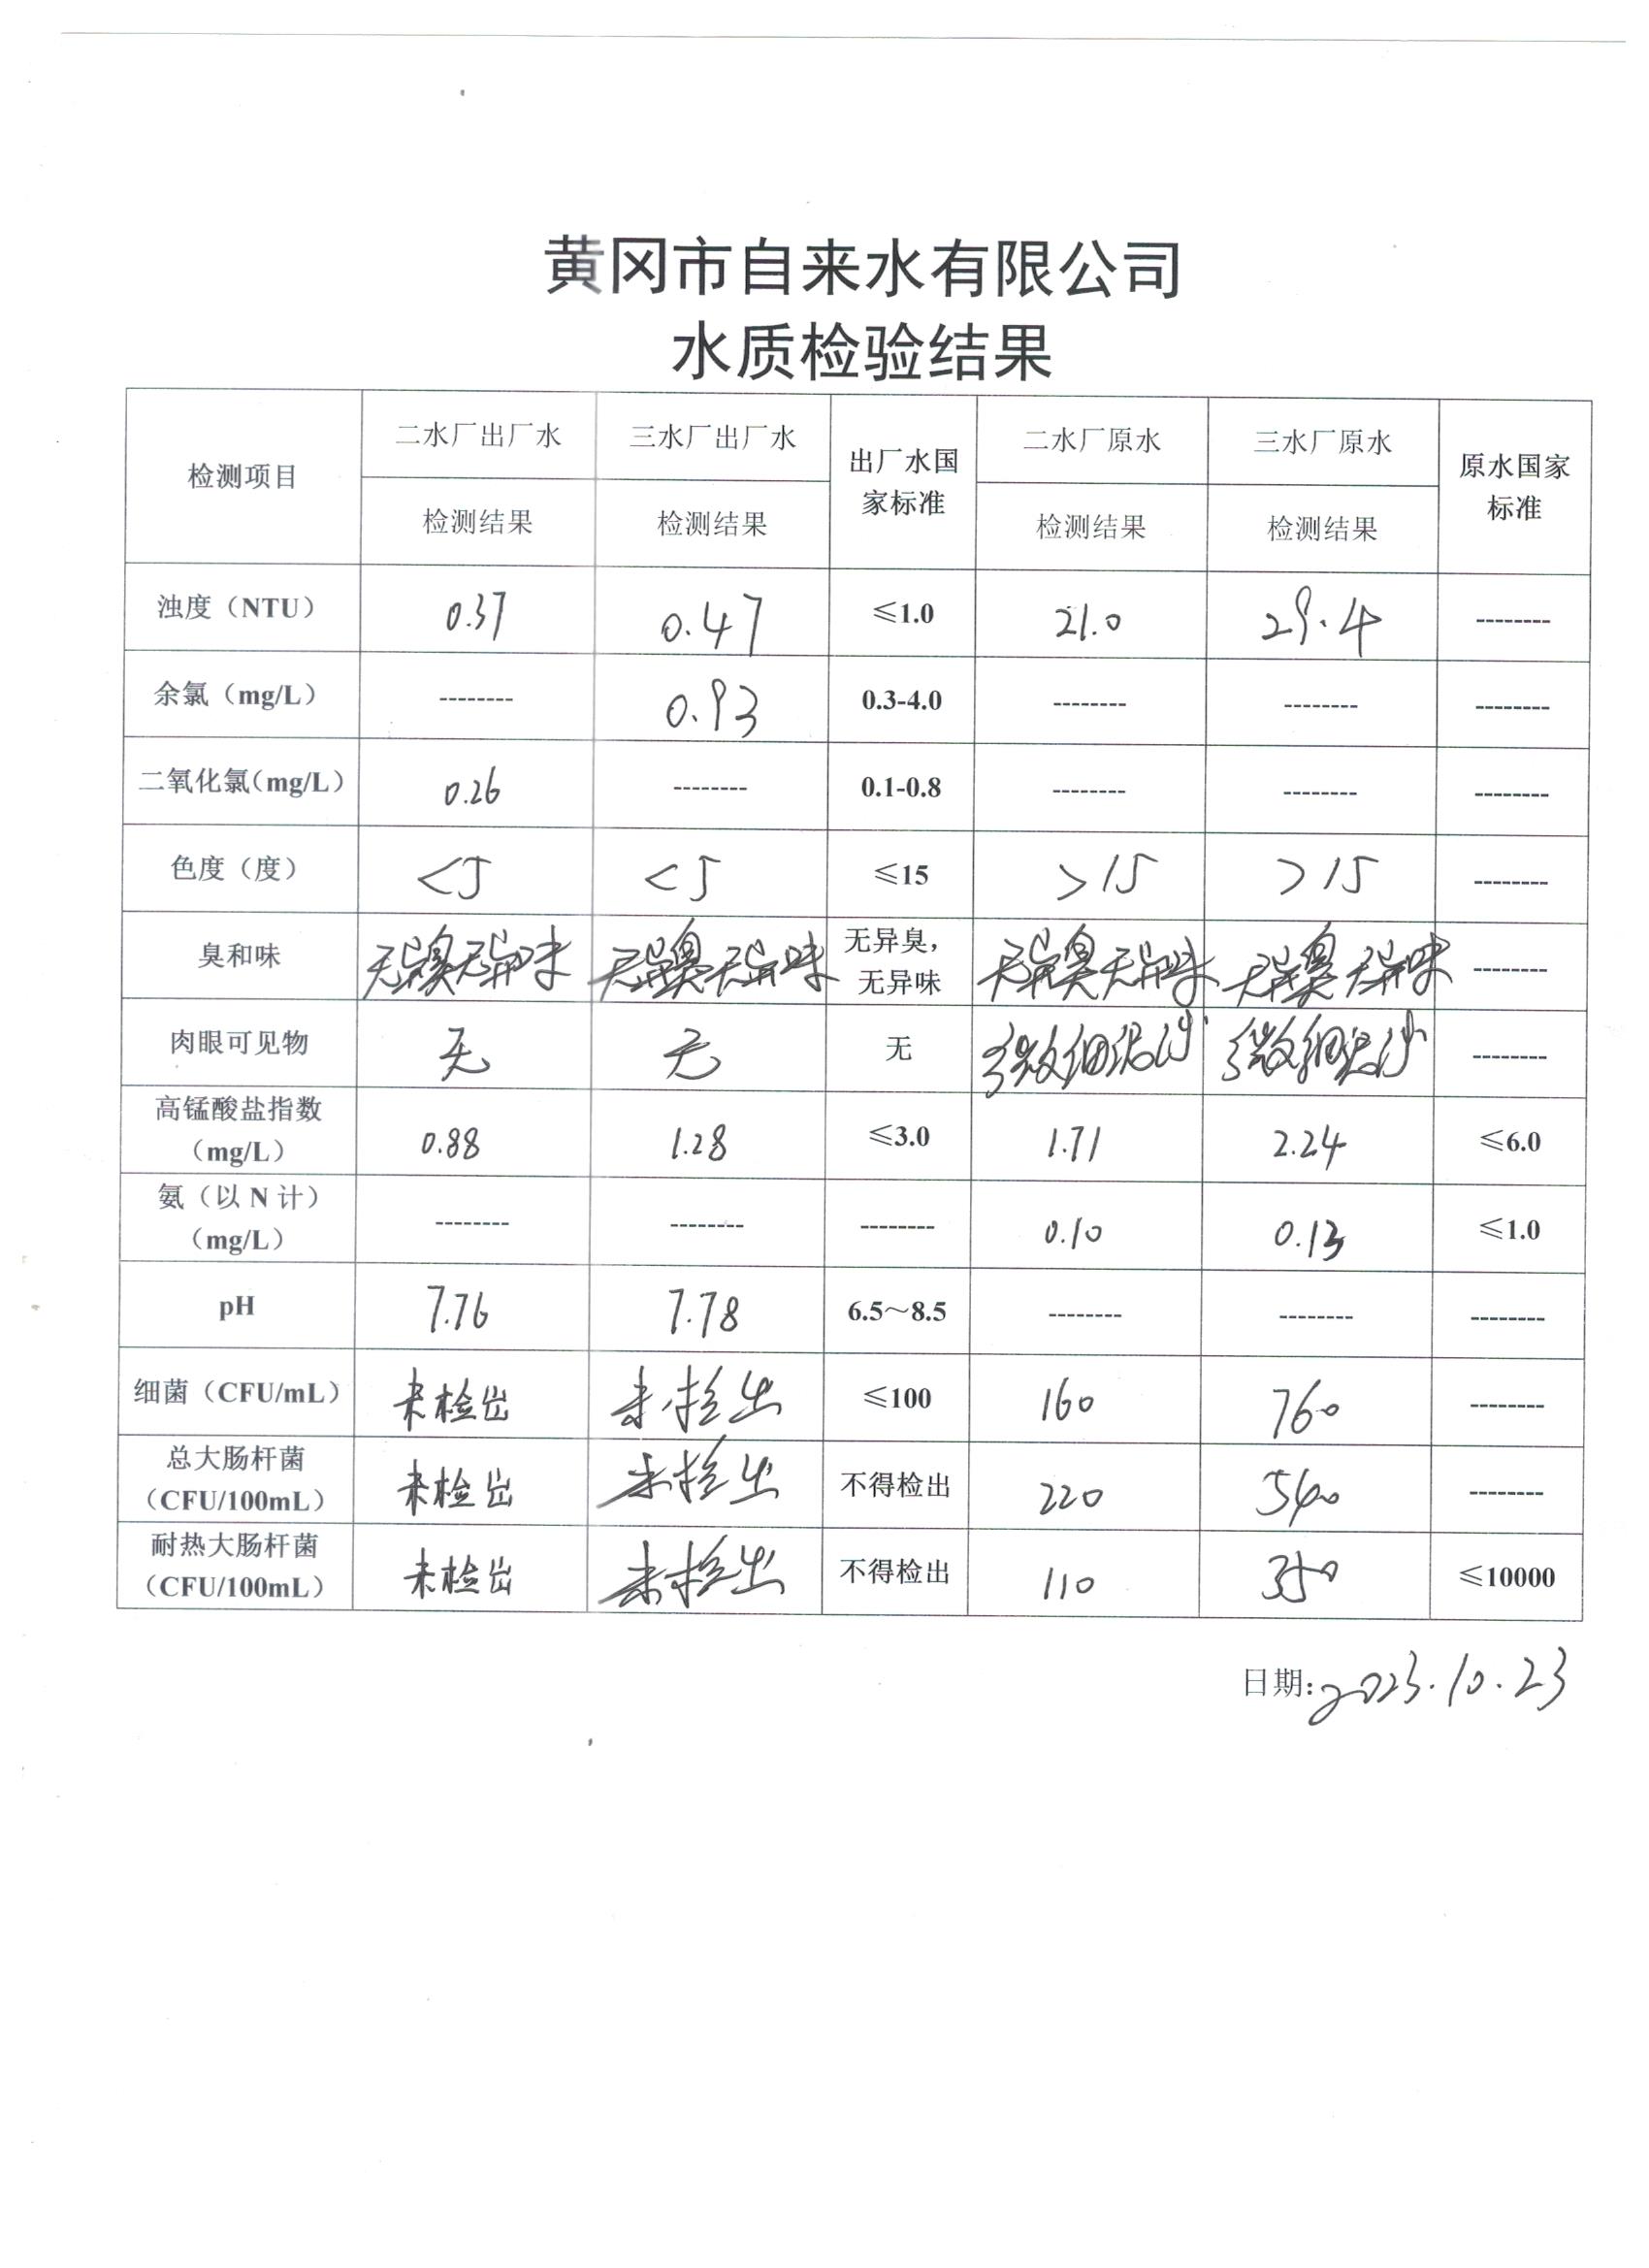 黄冈市自来水有限公司
水质检验结果
检测项目 二水厂出厂水 三水厂出厂水 出厂水国家标准 二水厂原水 三水厂原水 原水国家标准
检测结果 检测结果 检测结果 检测结果
浊度（NTU） 0.37 0.47 ≤1.0 21.0 29.4 --------
余氯（mg/L） -------- 0.93 0.3-4.0 -------- -------- --------
二氧化氯（mg/L） 0.26 -------- 0.1-0.8 -------- -------- --------
色度（度） <5 <5 ≤15 >15 >15 --------
臭和味 无异臭无异味 无异臭无异味 无异臭，无异味 无异臭无异味 无异臭无异味 --------
肉眼可见物 无 无 无 微细泥沙 微细泥沙 --------
高锰酸盐指数（mg/L） 0.88 1.28 ≤3.0 1.71 2.24 ≤6.0
氨（以 N 计）（mg/L） -------- -------- -------- 0.10 0.13 ≤1.0
pH 7.76 7.78 6.5～8.5 -------- -------- --------
细菌（CFU/mL） 未检出 未检出 ≤100 160 760 --------
总大肠杆菌（CFU/100mL） 未检出 未检出 不得检出 220 540 --------
耐热大肠杆菌（CFU/100mL） 未检出 未检出 不得检出 110 350 ≤10000
日期: 2023.10.23